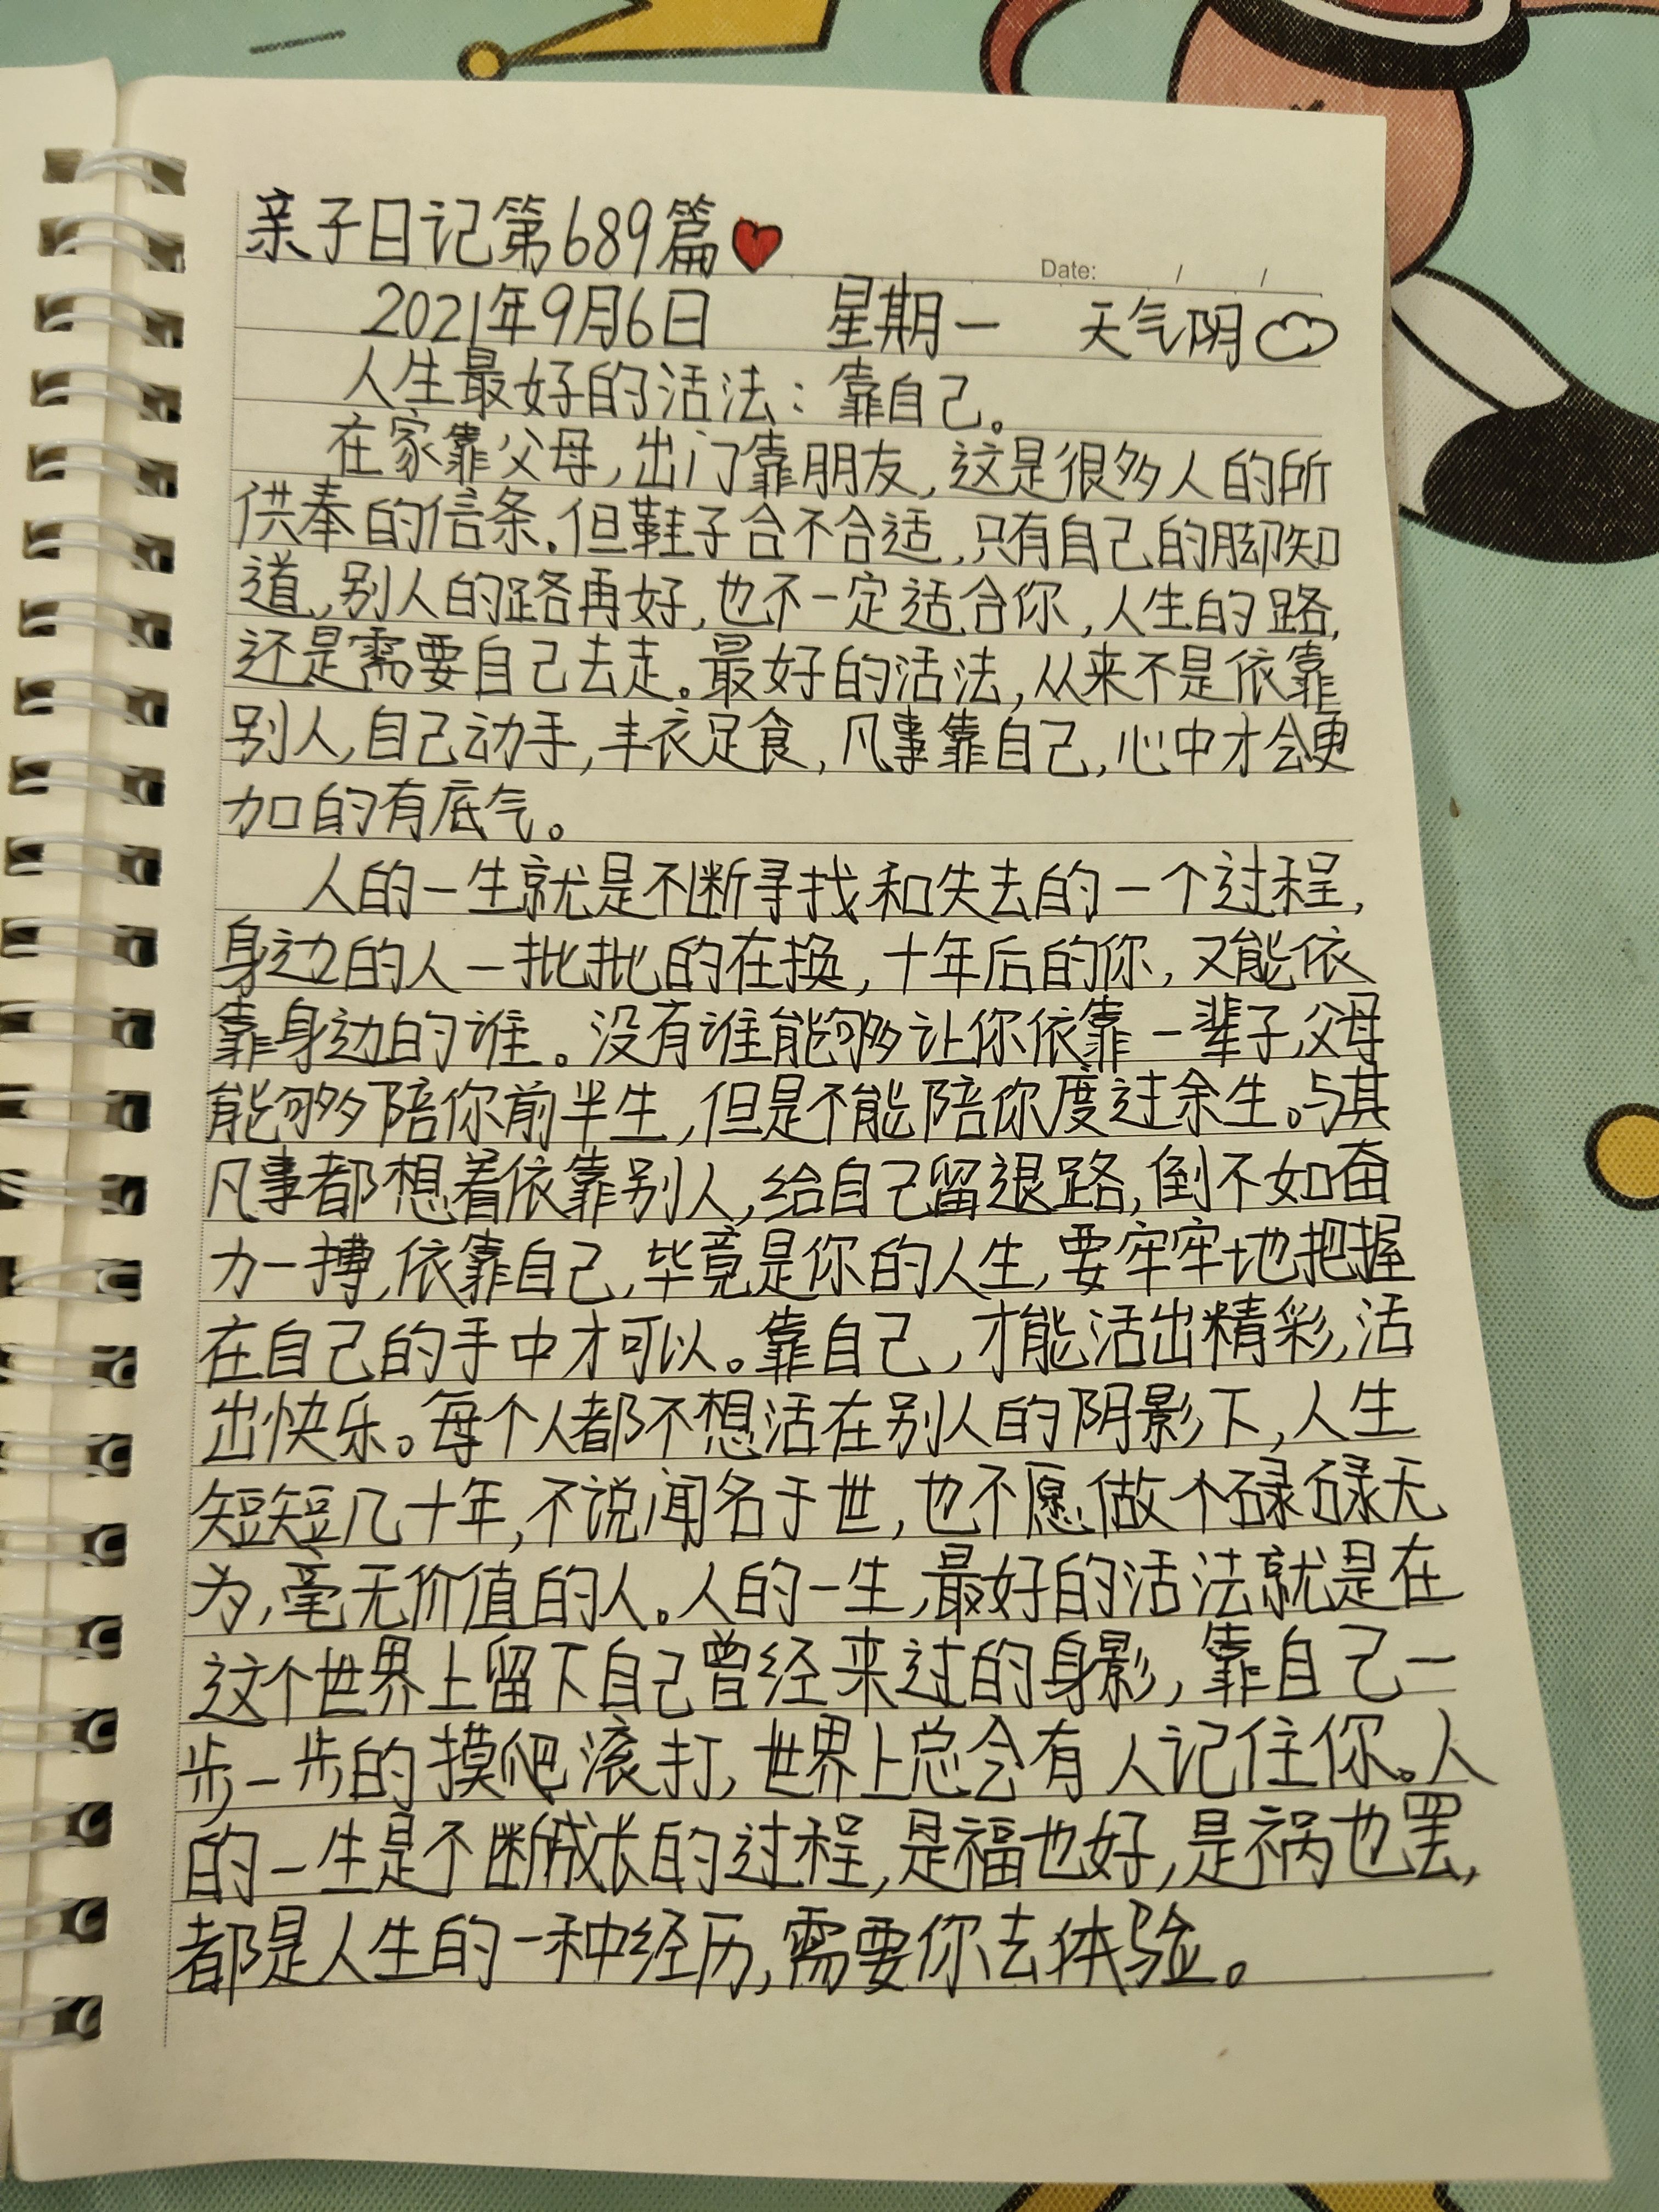 亲子日记第689篇
Date: / /
2021年9月6日 星期一 天气阴
人生最好的活法：靠自己。
在家靠父母,出门靠朋友,这是很多人的所
供奉的信条.但鞋子合不合适,只有自己的脚知
道,别人的路再好,也不一定适合你,人生的路,
还是需要自己去走。最好的活法,从来不是依靠
别人,自己动手,丰衣足食,凡事靠自己,心中才会更
加的有底气。
人的一生就是不断寻找和失去的一个过程,
身边的人一批批的在换,十年后的你,又能依
靠身边的谁。没有谁能够让你依靠一辈子,父母
能够陪你前半生,但是不能陪你度过余生。与其
凡事都想着依靠别人,给自己留退路,倒不如奋
力一搏,依靠自己,毕竟是你的人生,要牢牢地把握
在自己的手中才可以。靠自己,才能活出精彩,活
出快乐。每个人都不想活在别人的阴影下,人生
短短几十年,不说闻名于世,也不愿做个碌碌无
为,毫无价值的人。人的一生,最好的活法就是在
这个世界上留下自己曾经来过的身影,靠自己一
步一步的摸爬滚打,世界上总会有人记住你。人
的一生是不断成长的过程,是福也好,是祸也罢,
都是人生的一种经历,需要你去体验。